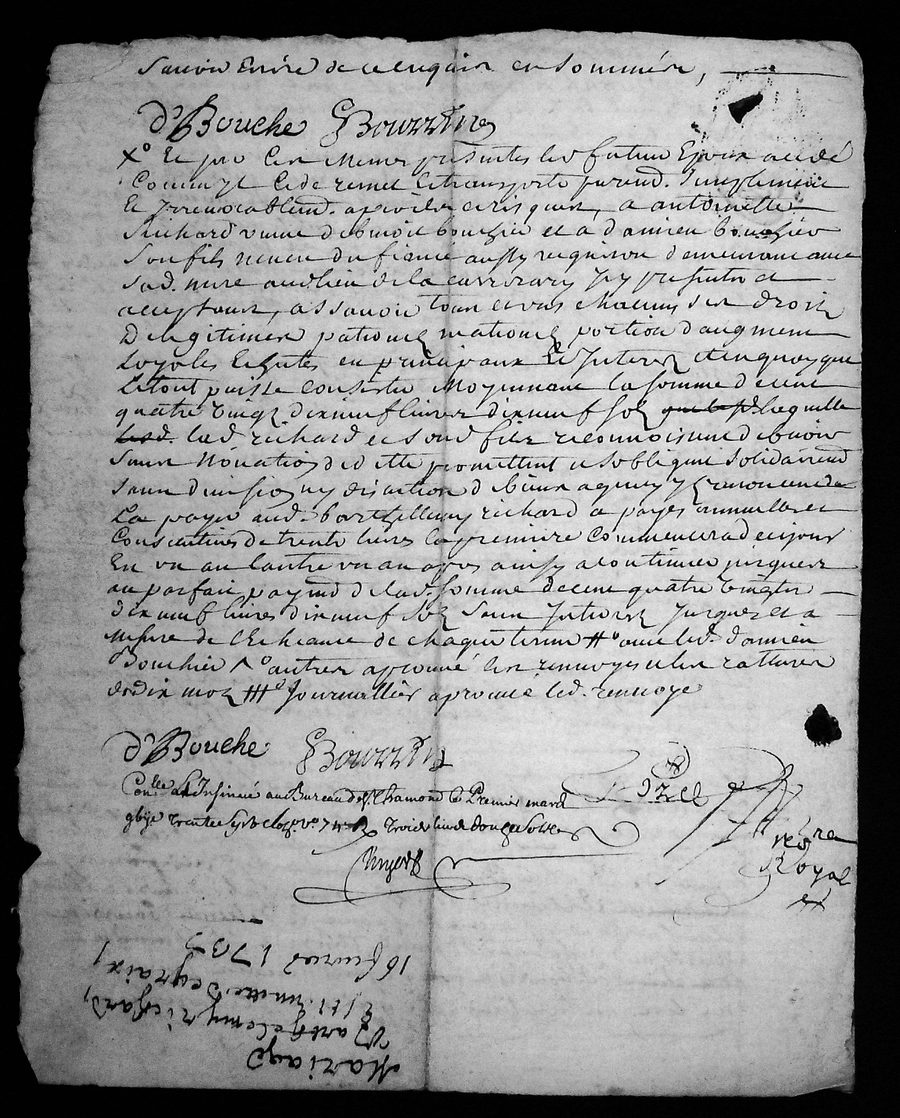 sauoir Ecrire de ce enquis et sommés,
d'Bouche Bourrin
X° Et par Ces Memes presentes les futurs Epoux ont cédé
Comme Ils Cede remet et transporte purem.t simplement
Et Irreuocablem.t a antoinette
Richard veuue de benoit bouchier et a damien bouchier
son fils neueu du fiancé aussy vigneron demeurant auec
sad. mere audlieu de la Icy presents et
acceptans, assauoir tous et uns chacuns ses droits
De legitimes paternel maternel portion d'augment
Loyales Echutes en principaux et Interets et enquoy que
Le tout puisse Consister Moyennant la somme de cent
quatre vingt dixneuf liures dixneuf sols laquelle
lad. richard et sond. filz reconnoissent debuoir
sans Nouation de dette promettent et sobligent solidairem.t
sans diuision ny discution de biens a quoy ils renoncent de
La payer aud. barthellemy richard a payes annuelles et
Consecutiues de trente liures la premiere Commencera de cejour
En un an lautre un an apres ainsy a Continuer jusques
au parfait payem.t de lad. somme de cent quatre vingts
dixneuf liures dixneuf sols sans Interets Jusques et a
mesure de l'Echeance de chaque terme #° auec led. damien
Bouchier /° autres aprouué les renuoyes et les ratures
de dix mots ###° Journallier aprouué led. renuoye
d'Bouche Bourrin
Con.lle et Insinué au Bureau de S.t Chamond le Premier mars
gbije trente Reçu Trois liures douze sols
nore
Royal
Mariage
Barthelemy richard,
Et
16 feurier 1733